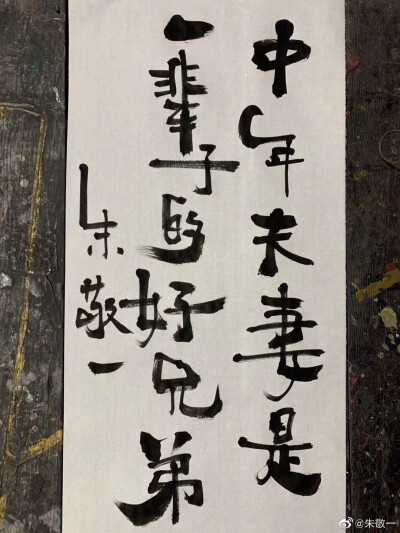 中年夫妻是
一辈子的好兄弟
朱敬一
@朱敬一